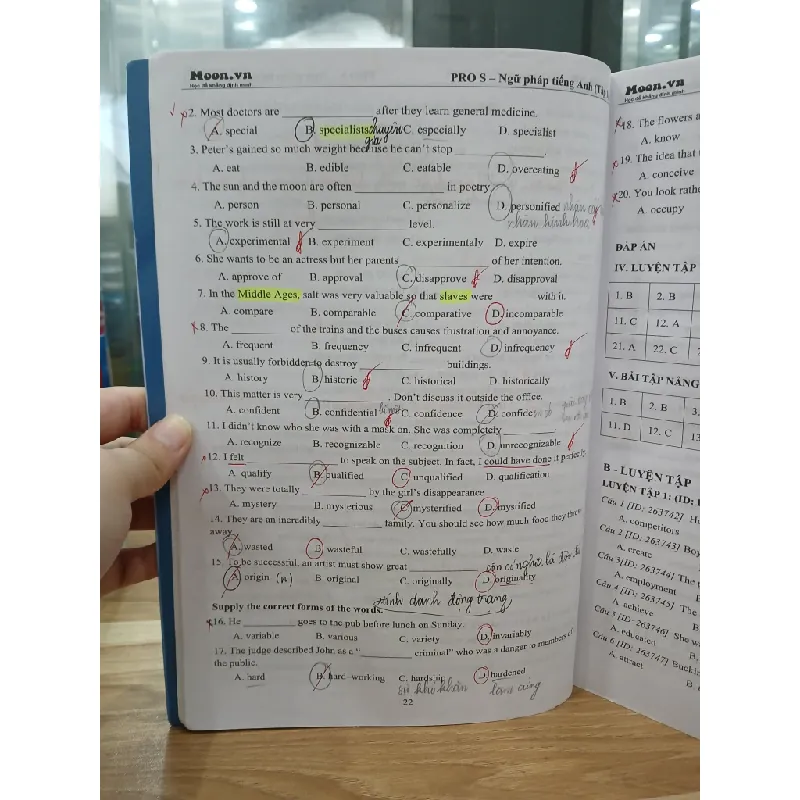 Moon.vn
Học để khẳng định mình
PRO S – Ngữ pháp tiếng Anh (Tập 1
2. Most doctors are ____________ after they learn general medicine.
A. special B. specialists C. especially D. specialist
chuyên gia
3. Peter's gained so much weight because he can't stop ____________
A. eat B. edible C. eatable D. overeating
4. The sun and the moon are often ____________ in poetry
A. person B. personal C. personalize D. personified
nhân hình hóa
5. The work is still at very ____________ level.
A. experimental B. experiment C. experimentaly D. expire
6. She wants to be an actress but her parents ____________ of her intention.
A. approve of B. approval C. disapprove D. disapproval
7. In the Middle Ages, salt was very valuable so that slaves were ______ with it.
A. compare B. comparable C. comparative D. incomparable
8. The ________ of the trains and the buses causes frustration and annoyance.
A. frequent B. frequency C. infrequent D. infrequency
9. It is usually forbidden to destroy ____________ buildings.
A. history B. historic C. historical D. historically
10. This matter is very ____________. Don't discuss it outside the office.
A. confident B. confidential C. confidence D. confidec
11. I didn't know who she was with a mask on. She was completely ________
A. recognize B. recognizable C. recognition D. unrecognizable
12. I felt ____________ to speak on the subject. In fact, I could have done it
A. qualify B. qualified C. unqualified D. qualification
13. They were totally ________ by the girl's disappearance
A. mystery B. mysterious C. mysterified D. mystified
14. They are an incredibly ________ family. You should see how much food they throw
away.
A. wasted B. wasteful C. wastefully D. waste
15. To be successful, an artist must show great ____________
A. origin (n) B. original C. originally D. originality
tính danh động trạng
Supply the correct forms of the words.
16. He ________ goes to the pub before lunch on Sunday.
A. variable B. various C. variety D. invariably
17. The judge described John as a "________ criminal" who was a danger to members of
the public.
A. hard B. hard-working C. hardship D. hardened
sự khó khăn làm cứng
22
Moon.vn
Học để khẳng định mình
18. The flowers a
A. know
19. The idea that
A. conceive
20. You look rathe
A. occupy
ĐÁP ÁN
IV. LUYỆN TẬP
1. B 2. B
11. C 12. A
21. A 22. C
V. BÀI TẬP NÂNG
1. B 2. B 3.
11. D 12. C 13
B - LUYỆN TẬP
LUYỆN TẬP 1: (ID: 1
Câu 1 [ID: 263742] H
A. competitors
Câu 2 [ID: 263743] Boy
A. create
Câu 3 [ID: 263744] The
A. employment B
Câu 4 [ID: 263745] The
A. achieve B
Câu 5 [ID: 263746] She w
A. educated B.
Câu 6 [ID: 263747] Bucki
A. attract B.